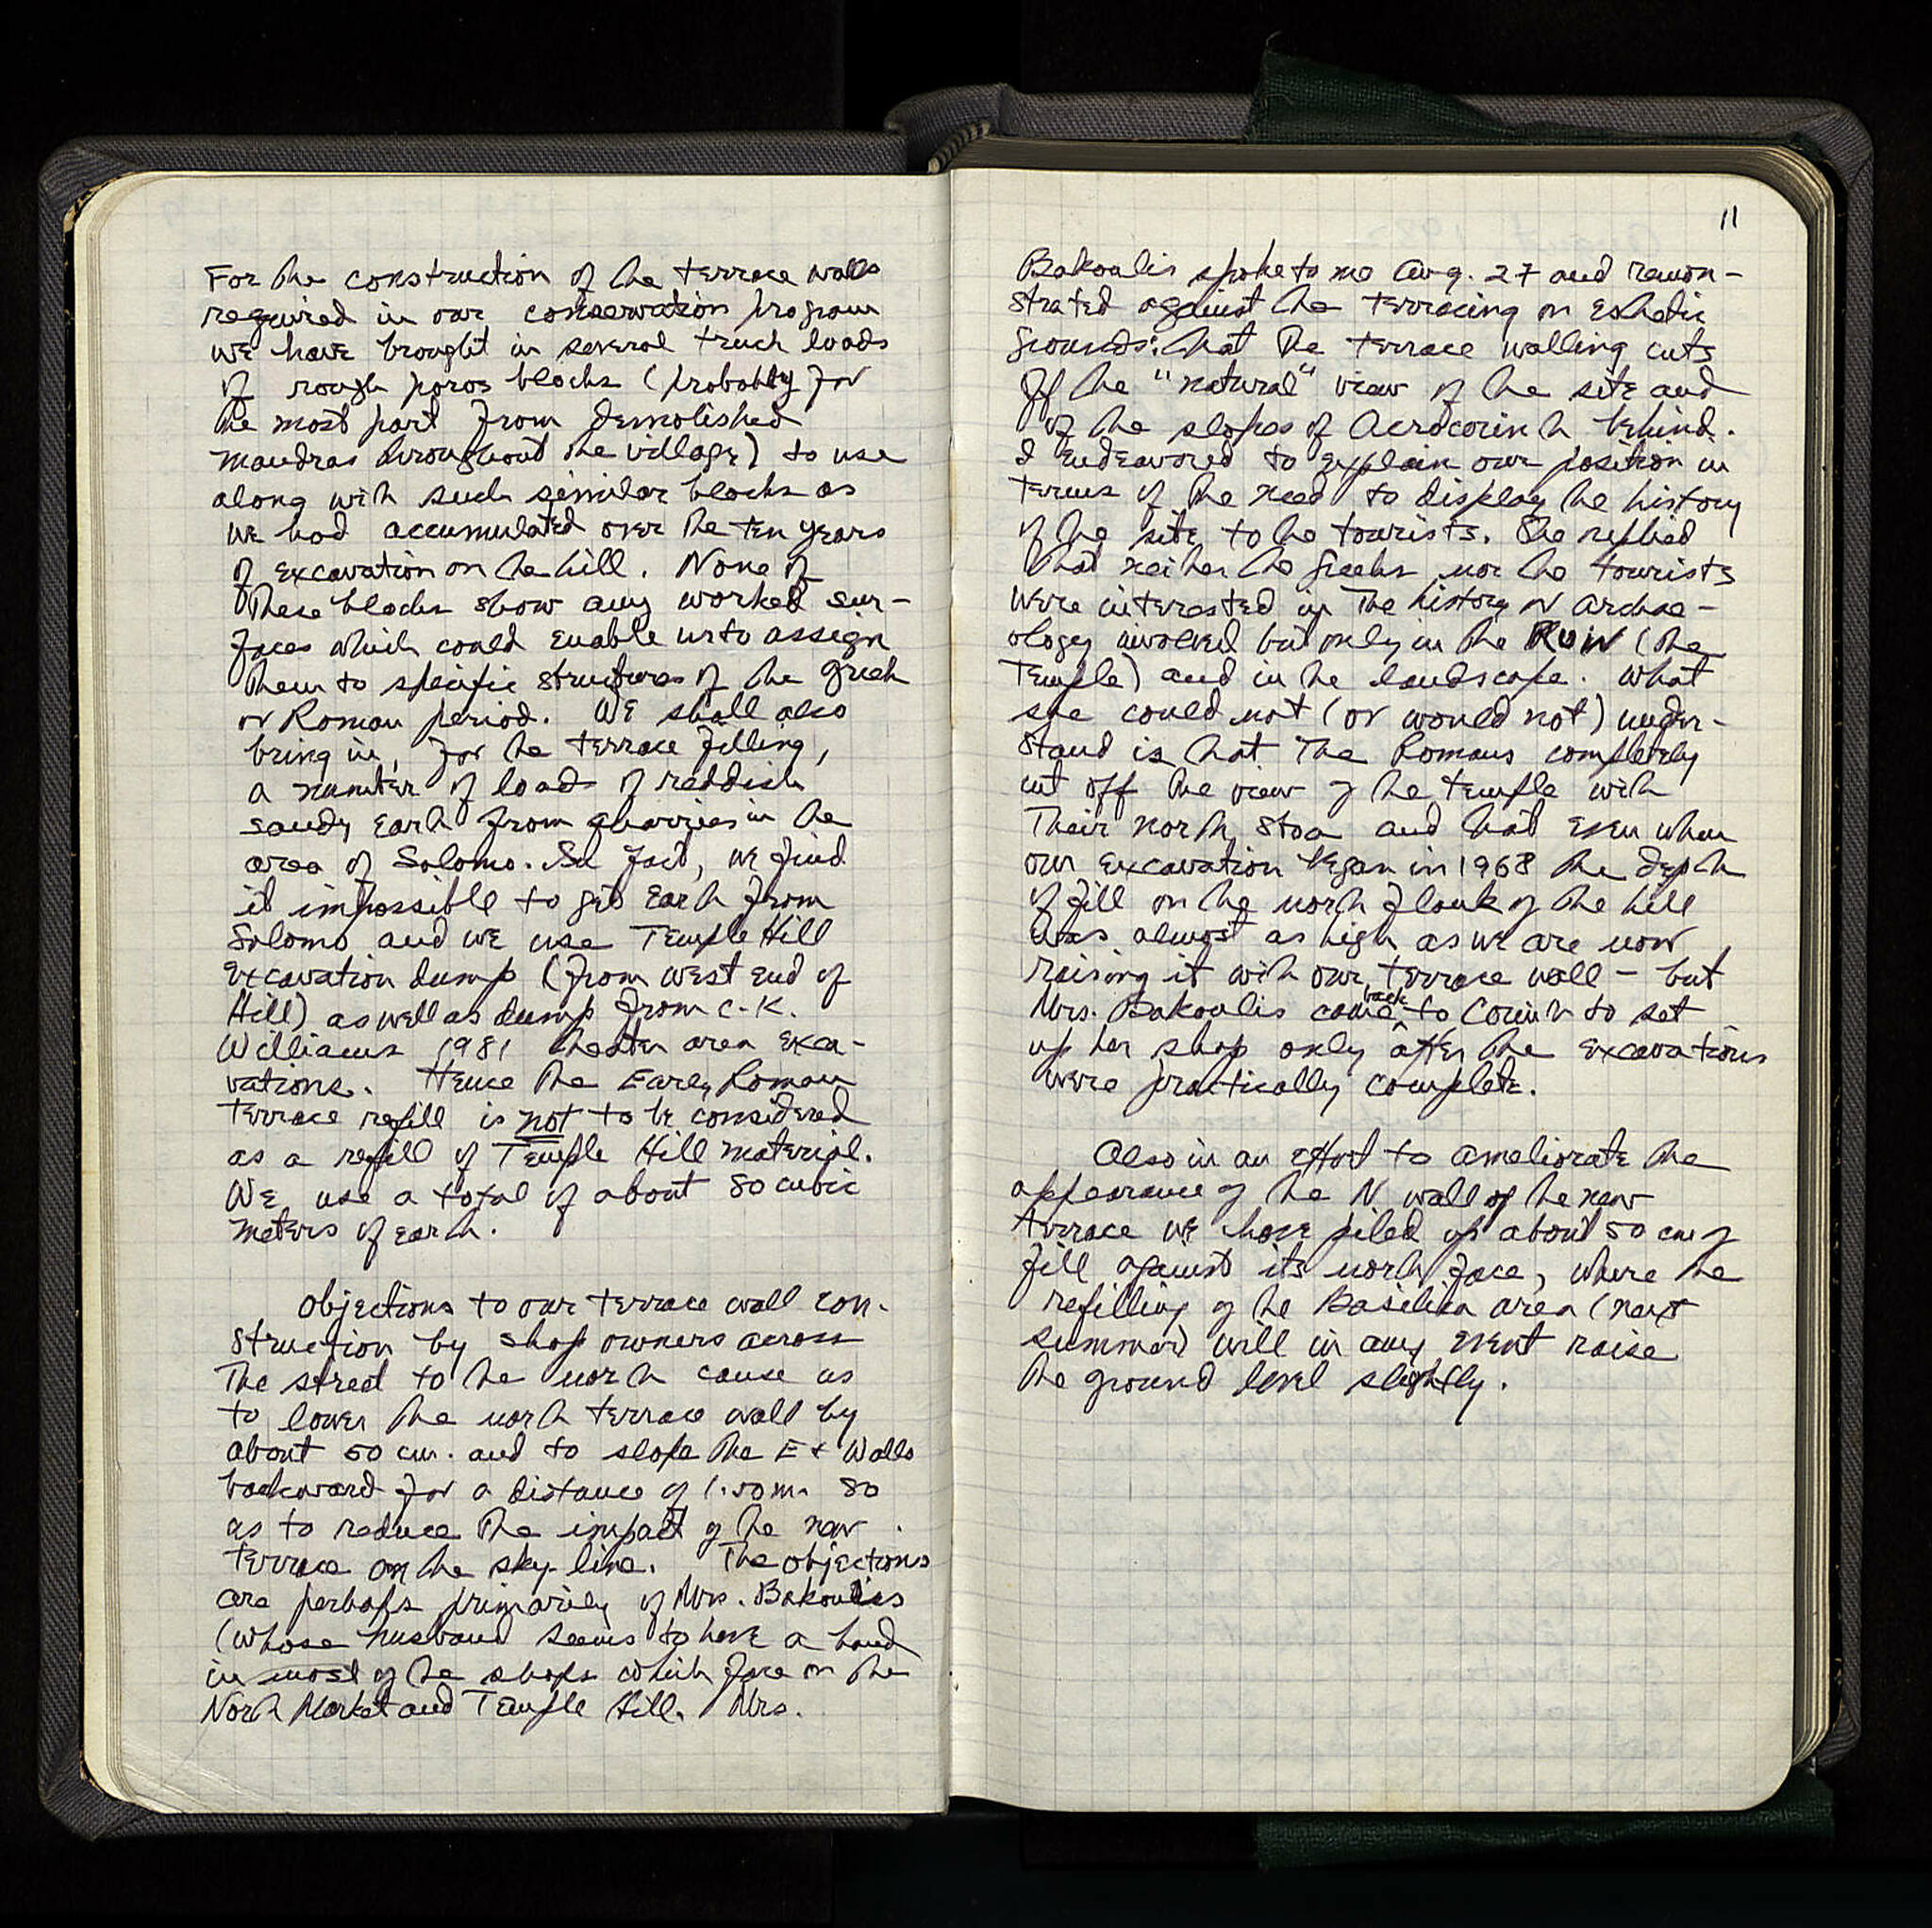 For the construction of the terrace walls
required in our conservation program
we have brought in several truck loads
of rough poros blocks (probably for
the most part from demolished
mandras throughout the village) to use
along with such similar blocks as
we had accumulated over the ten years
of excavation on the hill. None of
these blocks show any worked sur-
faces which could enable us to assign
them to specific structures of the Greek
or Roman period. We shall also
bring in, for the terrace filling,
a number of loads of reddish
sandy earth from quarries in the
area of Solomo. In fact, we find
it impossible to get earth from
Solomo and we use Temple Hill
excavation dump (from west end of
Hill) as well as dump from C.K.
Williams 1981 theater area exca-
vations. Hence the Early Roman
terrace refill is not to be considered
as a refill of Temple Hill material.
We use a total of about 80 cubic
meters of earth.
Objections to our terrace wall con-
struction by shop owners across
the street to the north cause us
to lower the north terrace wall by
about 50 cm. and to slope the E + Walls
backward for a distance of 1.50 m. so
as to reduce the impact of the new
terrace on the sky-line. The objections
are perhaps primarily of Mrs. Bakoulis
(whose husband seems to have a hand
in most of the shops which face on the
North Market and Temple Hill. Mrs.
11
Bakoulis spoke to me Aug. 27 and remon-
strated against the terracing on esthetic
grounds: that the terrace walling cuts
off the "natural" view of the site and
of the slopes of Acrocorinth behind.
I endeavored to explain our position in
terms of the need to display the history
of the site to the tourists. She replied
that neither the Greeks nor the tourists
were interested in the history or archae-
ology involved but only in the RUIN (the
Temple) and in the landscape. What
she could not (or would not) under-
stand is that the Romans completely
cut off the view of the temple with
their north stoa and that even when
our excavation began in 1968 the depth
of fill on the north flank of the hill
was almost as high as we are now
raising it with our terrace wall – but
Mrs. Bakoulis came back to Corinth to set
up her shop only after the excavations
were practically complete.
Also in an effort to ameliorate the
appearance of the N wall of the new
terrace we have piled up about 50 cm of
fill against its north face, where the
refilling of the Basilica area (next
summer) will in any event raise
the ground level slightly.